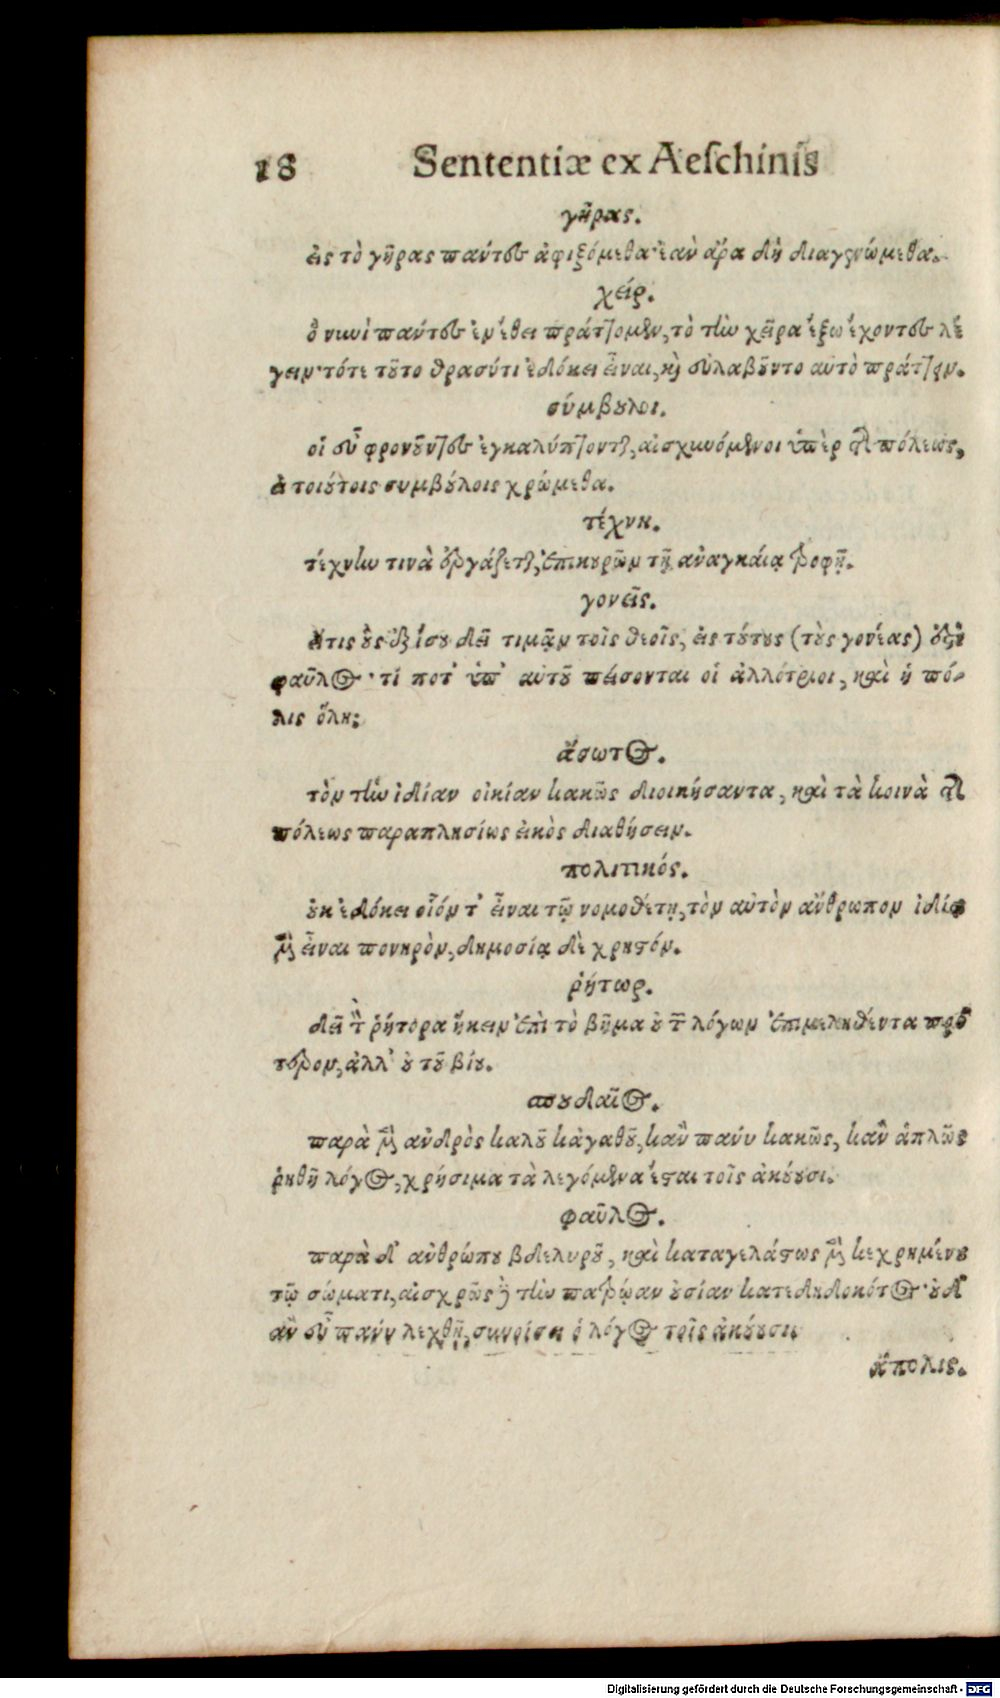 18 Sententiæ ex Aeſchinis
γῆρας.
εἰς τὸ γῆρας πάντες ἀφιξόμεθα· ἐὰν ἄρα δὴ διαγενώμεθα.
χείρ.
ὃ νυνὶ πάντες ἐν ἔθει πράττομεν, τὸ τὴν χεῖρα ἔξω ἔχοντες λέ
γειν· τότε τοῦτο θρασύ τι ἐδόκει εἶναι, καὶ εὐλαβοῦντο αὐτὸ πράττειν.
σύμβουλοι.
οἱ εὖ φρονοῦντες ἐγκαλύπτονται, αἰσχυνόμενοι ὑπὲρ τῆς πόλεως,
εἰ τοιούτοις συμβούλοις χρώμεθα.
τέχνη.
τέχνην τινὰ ἐργάζεται, ἐπικουρῶν τῇ ἀναγκαίᾳ τροφῇ.
γονεῖς.
ὅτις οὓς ἐξ ἴσου δεῖ τιμᾷν τοῖς θεοῖς, εἰς τούτους (τοὺς γονέας) ἐστὶ
φαῦλος· τί ποτ’ ὑπ’ αὐτοῦ πείσονται οἱ ἀλλότριοι, καὶ ἡ πό-
λις ὅλη;
ἄσωτος.
τὸν τὴν ἰδίαν οἰκίαν κακῶς διοικήσαντα, καὶ τὰ κοινὰ τῆς
πόλεως παραπλησίως εἰκὸς διαθήσειν.
πολιτικός.
οὐκ ἐδόκει οἷόν τ’ εἶναι τῷ νομοθέτῃ, τὸν αὐτὸν ἄνθρωπον ἰδίᾳ
μὲν εἶναι πονηρὸν, δημοσίᾳ δὲ χρηστόν.
ῥήτωρ.
δεῖ τὸν ῥήτορα ἥκειν ἐπὶ τὸ βῆμα οὐ τῶν λόγων ἐπιμεληθέντα πρό
τερον, ἀλλ’ οὐ τοῦ βίου.
σπουδαῖος.
παρὰ μὲν ἀνδρὸς καλοῦ κἀγαθοῦ, κἂν πάνυ κακῶς, κἂν ἁπλῶς
ῥηθῇ λόγος, χρήσιμα τὰ λεγόμενα ἔσται τοῖς ἀκούουσι.
φαῦλος.
παρὰ δ’ ἀνθρώπου βδελυροῦ, καὶ καταγελάστως μὲν κεχρημένου
τῷ σώματι, αἰσχρῶς δὲ τὴν πατρῴαν οὐσίαν κατεδηδοκότος· οὐδ’
ἂν εὖ πάνυ λεχθῇ, συνοίσει ὁ λόγος τοῖς ἀκούουσι.
ἄπολις.
Digitalisierung gefördert durch die Deutsche Forschungsgemeinschaft - DFG